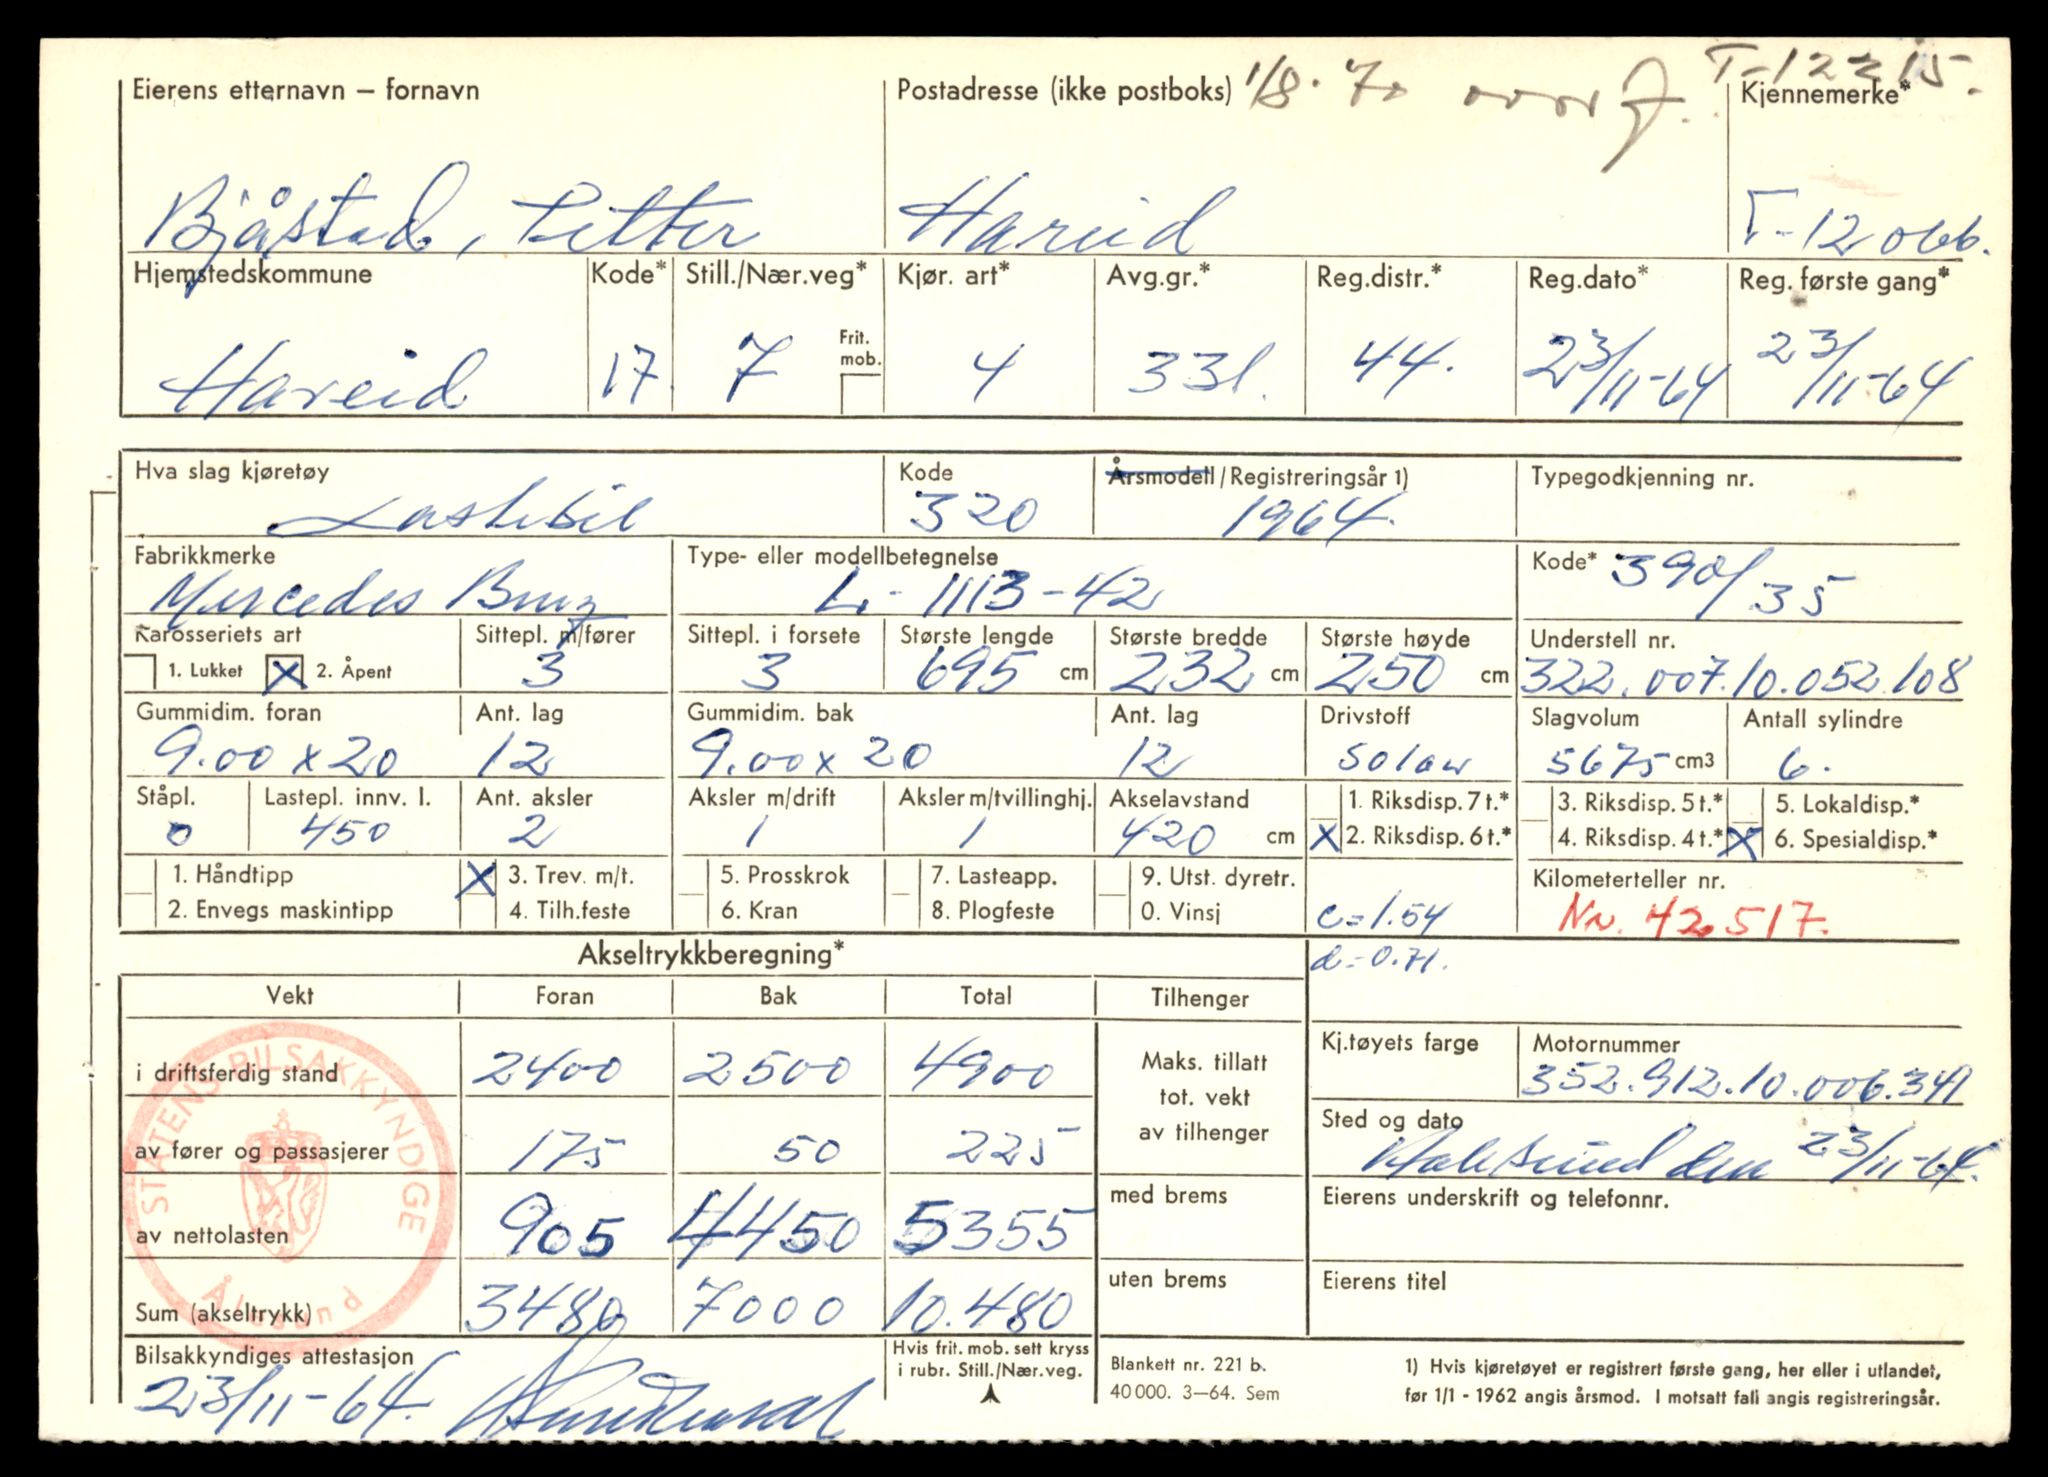 T-12215.
Eierens etternavn – fornavn Postadresse (ikke postboks) 1/8-70 Kjennemerke*
Bjåstad, Petter Hareid T-12066.
Hjemstedskommune Kode* Still./Nær.veg* Kjør. art* Avg.gr.* Reg.distr.* Reg.dato* Reg. første gang*
Frit. mob.
Hareid 17. 7 4 331. 44. 23/11-64 23/11-64
Hva slag kjøretøy Kode Årsmodell/Registreringsår 1) Typegodkjenning nr.
Lastebil 320 1964.
Fabrikkmerke Type- eller modellbetegnelse Kode* 390/35
Mercedes Benz L-1113-42
Karosseriets art Sittepl. m/fører Sittepl. i forsete Største lengde Største bredde Største høyde Understell nr.
1. Lukket X 2. Åpent 3 3 695 cm 232 cm 250 cm 322.007.10.052.108
Gummidim. foran Ant. lag Gummidim. bak Ant. lag Drivstoff Slagvolum Antall sylindre
9.00 x 20 12 9.00 x 20 12 Solar 5675 cm3 6.
Ståpl. Lastepl. innv. l. Ant. aksler Aksler m/drift Aksler m/tvillinghj. Akselavstand 1. Riksdisp. 7 t.* 3. Riksdisp. 5 t.* 5. Lokaldisp.*
0 450 2 1 1 420 cm X 2. Riksdisp. 6 t.* 4. Riksdisp. 4 t.* X 6. Spesialdisp.*
1. Håndtipp X 3. Trev. m/t. 5. Prosskrok 7. Lasteapp. 9. Utst. dyretr. Kilometerteller nr.
2. Envegs maskintipp 4. Tilh.feste 6. Kran 8. Plogfeste 0. Vinsj c=1.54 Nr. 42517.
Akseltrykkberegning* d=0.71.
Vekt Foran Bak Total Tilhenger
i driftsferdig stand 2400 2500 4900 Maks. tillatt tot. vekt av tilhenger Kj.tøyets farge Motornummer
352.912.10.006.341
av fører og passasjerer 175 50 225 Sted og dato
Aalesund den 23/11-64.
av nettolasten 905 4450 5355 med brems Eierens underskrift og telefonnr.
Sum (akseltrykk) 3480 7000 10.480 uten brems Eierens titel
STATENS BILSAKKYNDIGE
Ålesund
Bilsakkyndiges attestasjon Hvis frit. mob. sett kryss i rubr. Still./Nær.veg. Blankett nr. 221 b. 1) Hvis kjøretøyet er registrert første gang, her eller i utlandet,
23/11-64. 40 000. 3–64. Sem før 1/1 - 1962 angis årsmod. I motsatt fall angis registreringsår.